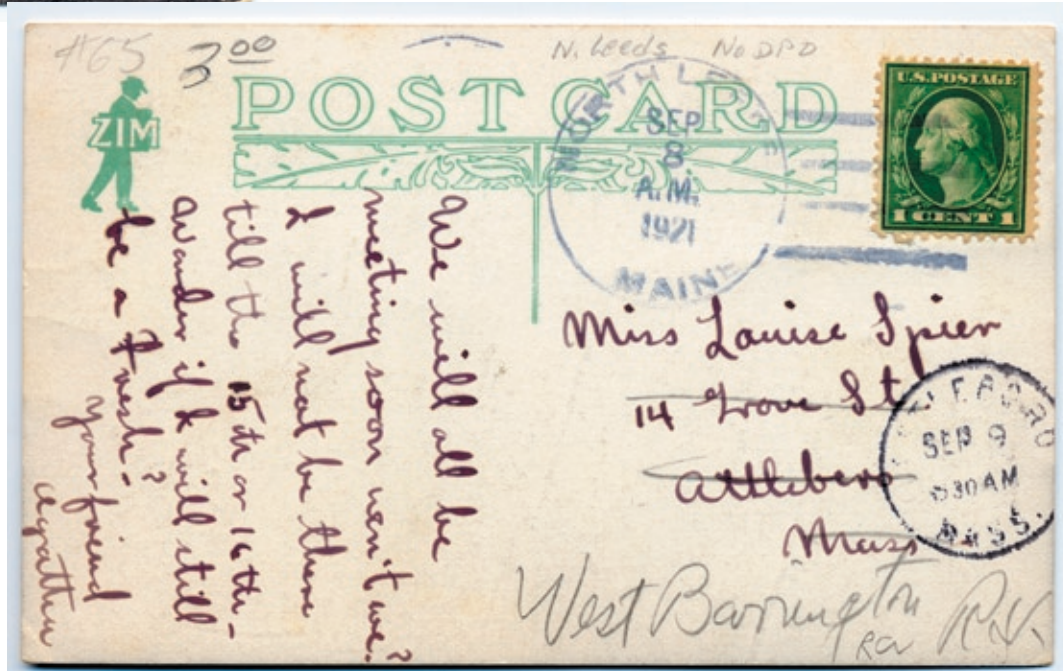 #65
3.00
N. Leeds No DPO
ZIM
POST CARD
NORTH LEEDS
SEP
8
A.M.
1921
MAINE
U.S. POSTAGE
1 CENT 1
We will all be
meeting soon won't we?
I will not be there
till the 15th or 16th-
Wonder if k will still
be a Fresh-?
your friend
Miss Louise Spier
14 Grove St
Attleboro
Mass
ATTLEBORO
SEP 9
830AM
MASS.
West Barrington
R.I.